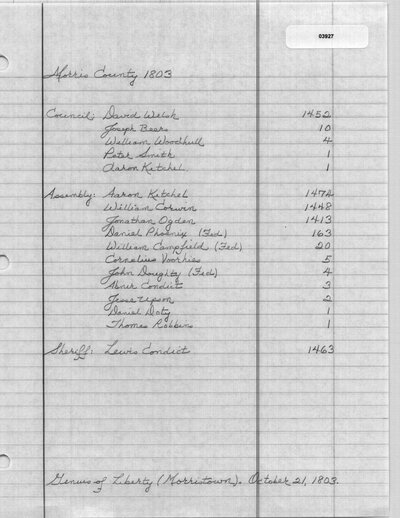 03927
Morris County 1803
Council: David Welsh 1452
Joseph Beers 10
William Woodhull 4
Peter Smith 1
Aaron Kitchel 1
Assembly: Aaron Kitchel 1472
William Corwin 1448
Jonathan Ogden 1413
Daniel Phoenix (Fed) 163
William Campfield (Fed) 20
Cornelius Voorhies 5
John Doughty (Fed) 4
Abner Condict 3
Jesse Upson 2
Daniel Doty 1
Thomas Robbins 1
Sheriff: Lewis Condict 1463
Genius of Liberty (Morristown). October 21, 1803.